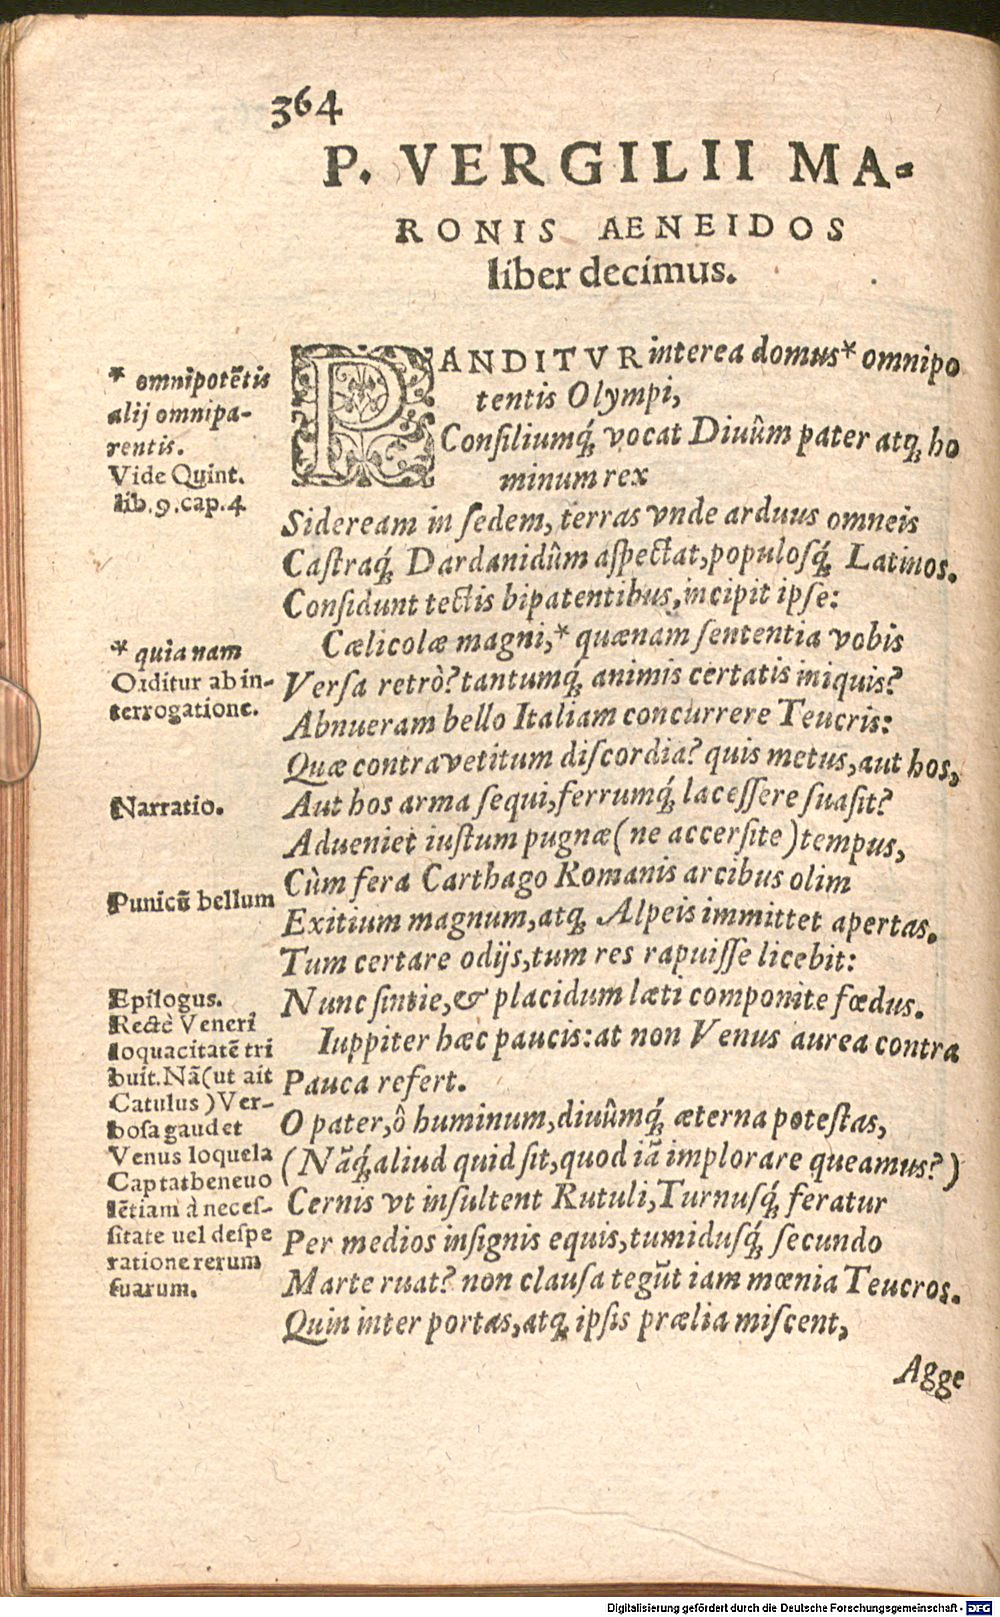 364
P. VERGILII MA-
RONIS AENEIDOS
liber decimus.
PANDITVR interea domus* omnipo
tentis Olympi,
Consiliumq́; vocat Diuûm pater atq; ho
minum rex
Sideream in sedem, terras vnde arduus omneis
Castraq́; Dardanidûm aspectat, populosq́; Latinos.
Considunt tectis bipatentibus, incipit ipse:
Cælicolæ magni,* quænam sententia vobis
Versa retrò? tantumq́; animis certatis iniquis?
Abnueram bello Italiam concurrere Teucris:
Quæ contra vetitum discordia? quis metus, aut hos,
Aut hos arma sequi, ferrumq́; lacessere suasit?
Adueniet iustum pugnæ (ne accersite) tempus,
Cùm fera Carthago Romanis arcibus olim
Exitium magnum, atq; Alpeis immittet apertas.
Tum certare odijs, tum res rapuisse licebit:
Nunc sinite, & placidum læti componite fœdus.
Iuppiter hæc paucis: at non Venus aurea contra
Pauca refert.
O pater, ô huminum, diuûmq́; æterna potestas,
(Nãq́; aliud quid sit, quod iã implorare queamus?)
Cernis vt insultent Rutuli, Turnusq́; feratur
Per medios insignis equis, tumidusq́; secundo
Marte ruat? non clausa tegũt iam mœnia Teucros.
Quin inter portas, atq; ipsis prælia miscent,
Agge
* omnipotẽtis
alij omnipa-
rentis.
Vide Quint.
lib.9.cap.4
* quia nam
Orditur ab in-
terrogatione.
Narratio.
Punicũ bellum
Epilogus.
Rectè Veneri
loquacitatẽ tri
buit. Nã (ut ait
Catulus) Ver-
bosa gaudet
Venus loquela
Captat beneuo
lẽtiam à neces-
sitate uel despe
ratione rerum
suarum.
Digitalisierung gefördert durch die Deutsche Forschungsgemeinschaft - DFG